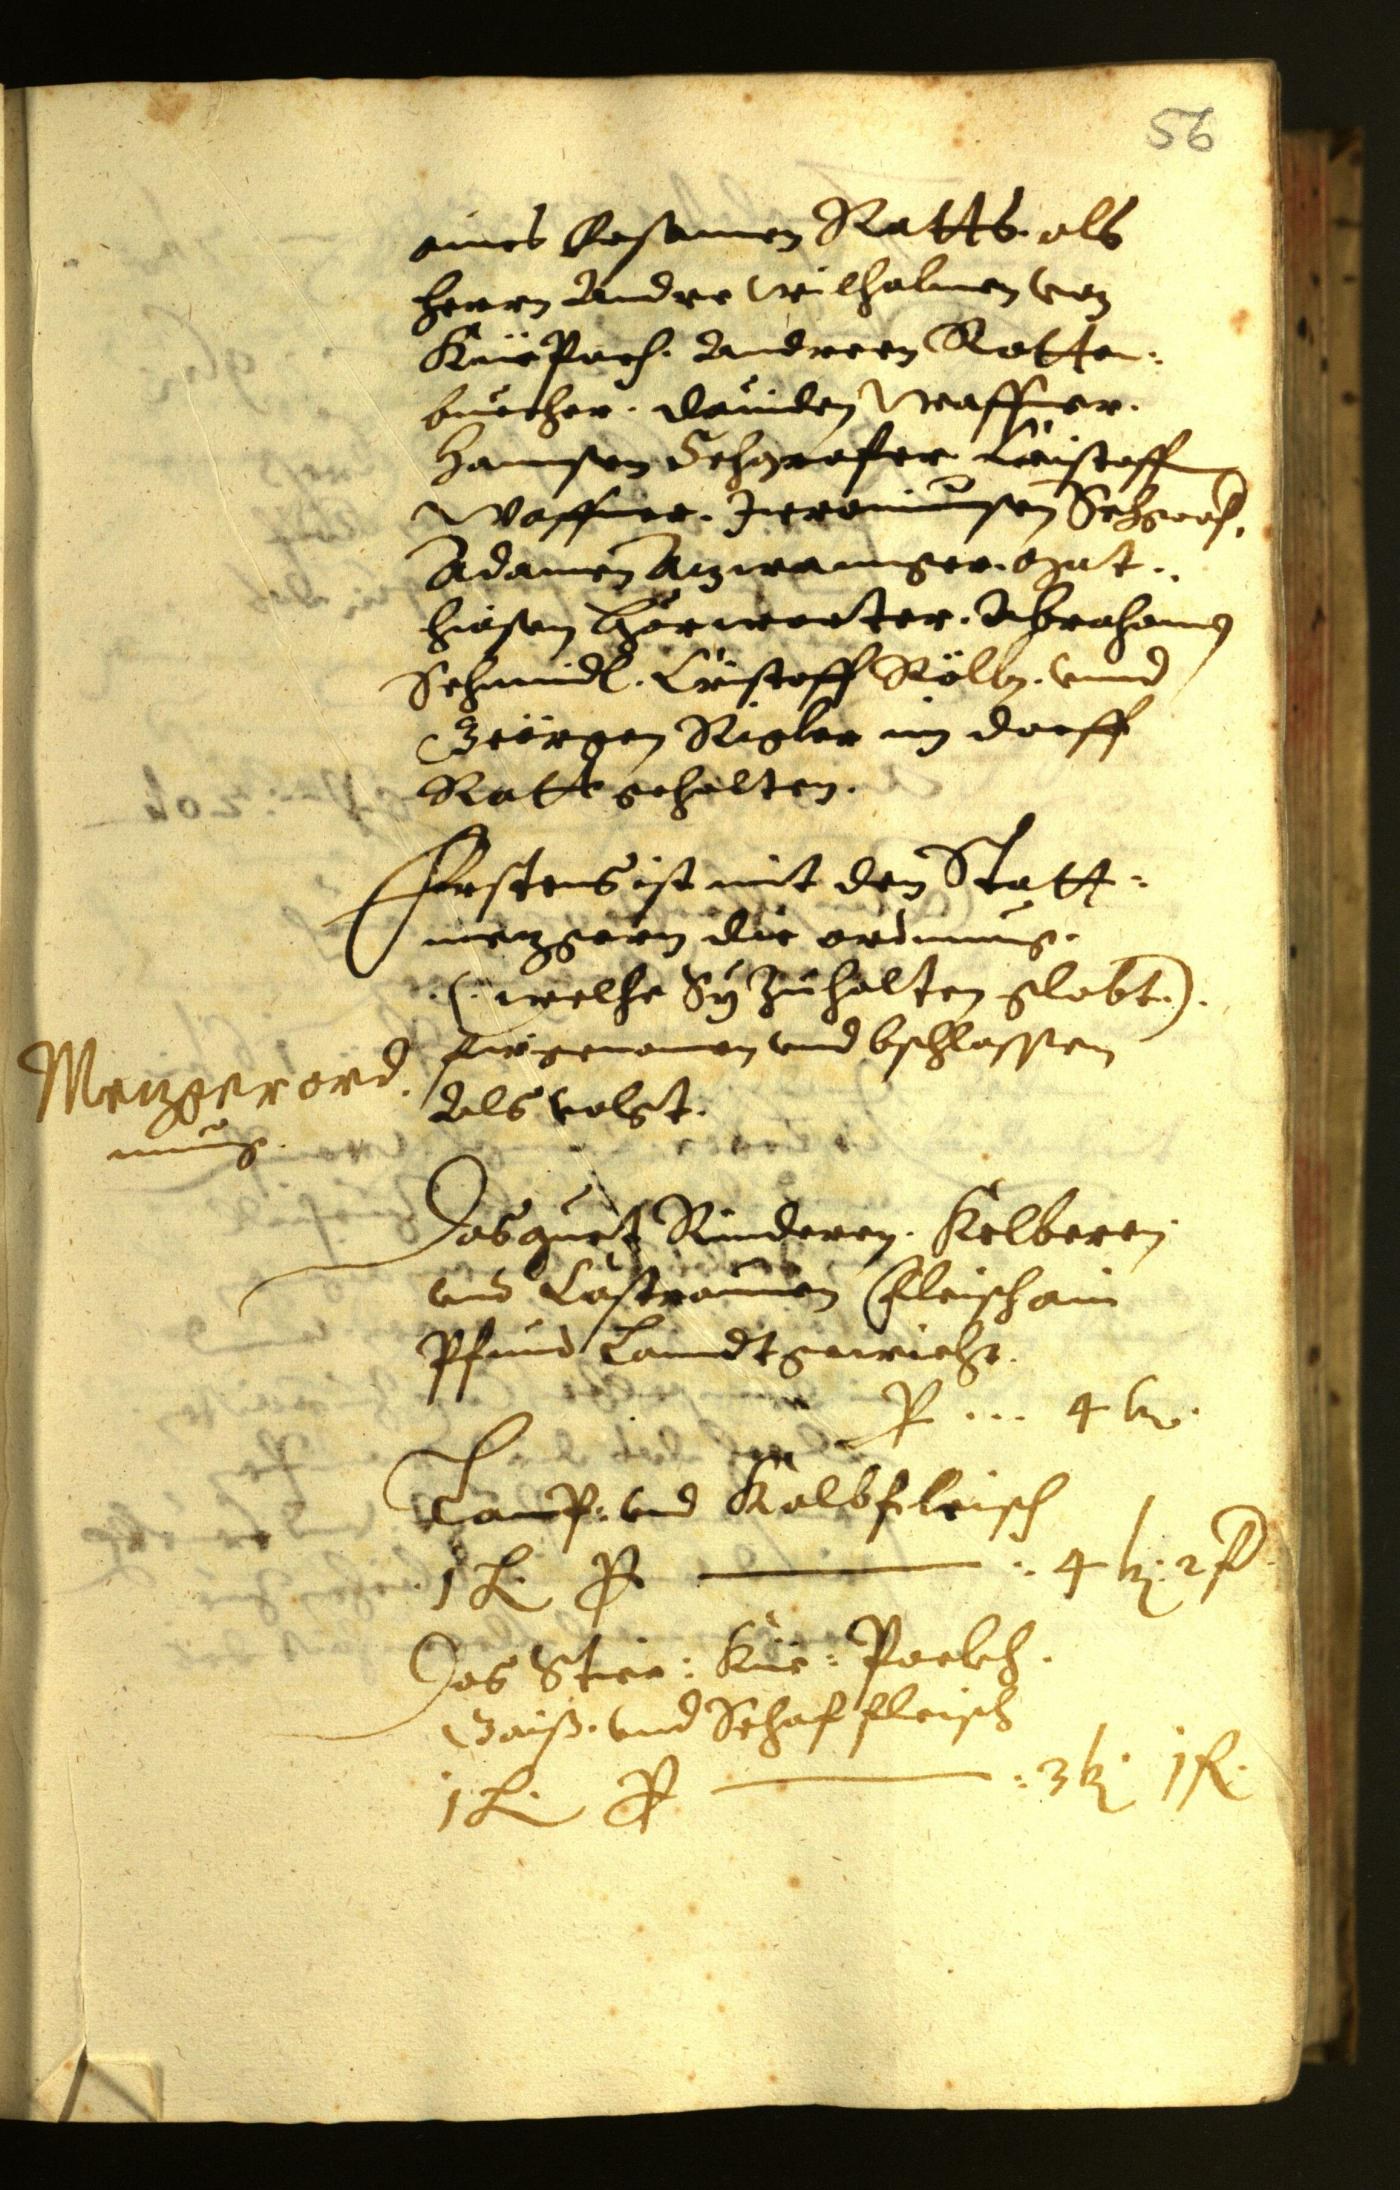 56
eines Ersamen Ratts. als
herrn Andre wilhalmen von
KürPach. Andreen Rotten=
buecher. Dauiden Waffner.
Hannsen Schgrafer Cristoff
Waffner. Jeronimusen Schgraf.
Adamen Anzwannger. Mat=
hiasen Hörwarter. Abrahamen
Schmidl. Cristoff Kölbn. vnnd
Geörgen Rigler im dorff
Ratt gehalten.
Erstens ist mit den Statt=
metzgern die ordnung.
(: welche Sy Zuhalten globt.).
fürgenomen vnd bschlossen
Als volgt.
Metzger ord.
nung.
Das guet Rinderen. Kelberen
vnd Castrauen fleisch ain
Pfund Lanndtgewicht.
P ... 4 kr.
Lamp. vnd Kalbfleisch
1 L. P : 4 kr. 2 f
Das Stier: Küe: Poekh.
Gaiß. vnd Schaffleisch
1 L. P : 3 kr 1 f.